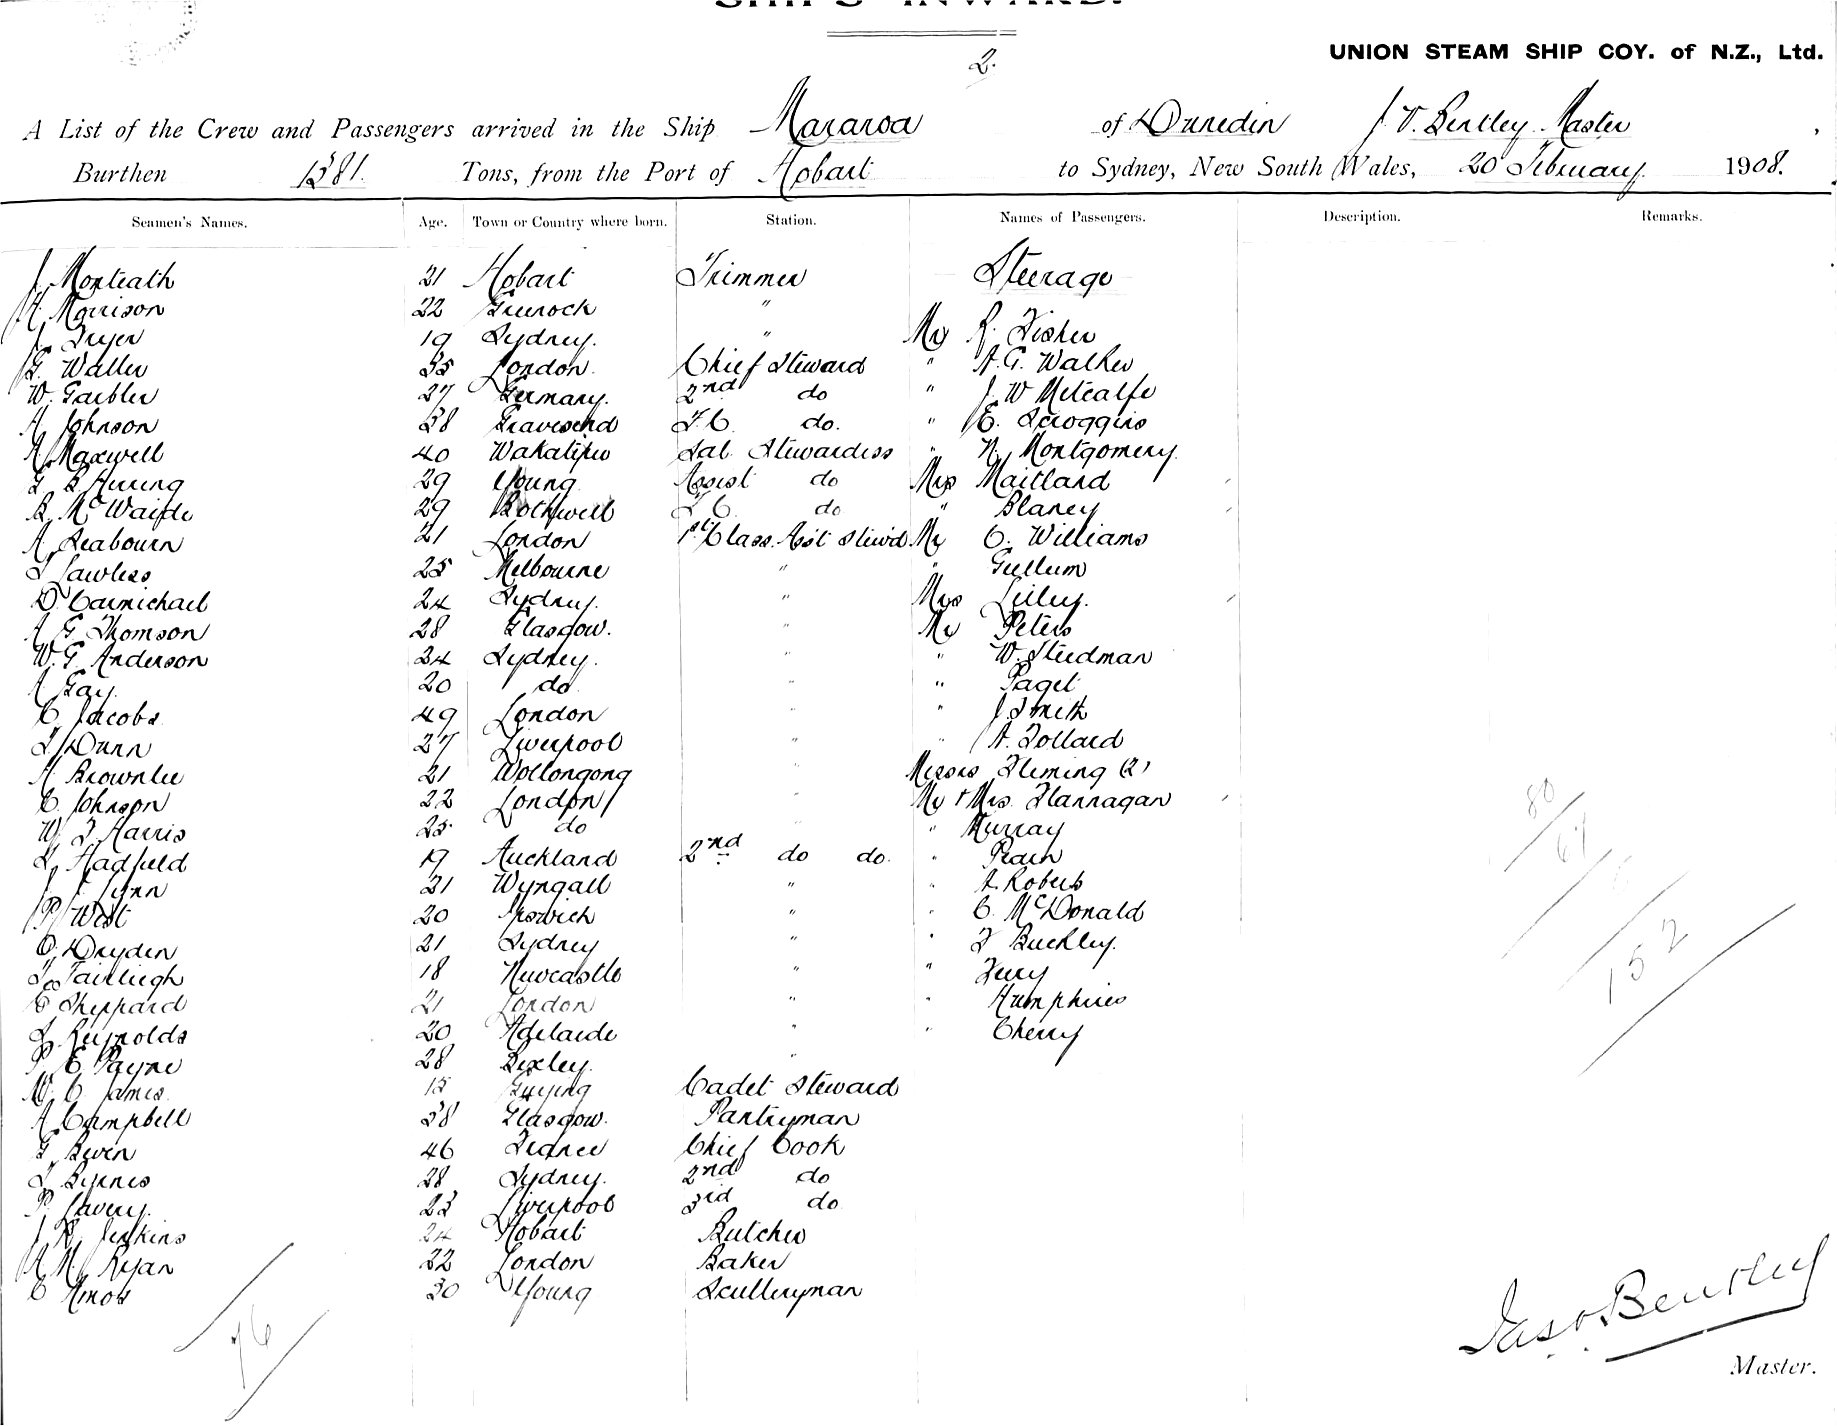 SHIPS INWARD.
2.
UNION STEAM SHIP COY. of N.Z., Ltd.
A List of the Crew and Passengers arrived in the Ship Mararoa of Dunedin J V. Bentley Master
Burthen 1381. Tons, from the Port of Hobart to Sydney, New South Wales, 20 February 1908.
Seamen's Names. Age. Town or Country where born. Station. Names of Passengers. Description. Remarks.
J Monteath 21 Hobart Trimmer Steerage
H Morrison 22 Greenock "
J Fryer 19 Sydney. " Mr R. Fisher
G. Waller 35 London. Chief Steward " A. G. Walker
W. Gaebler 27 Germany. 2nd do " J. W Metcalfe
A Johnson 38 Gravesend F.C. do. " E. Scroggins
A Maxwell 40 Wakatipu Sal. Stewardess " N. Montgomery.
29 Young Assist do Mrs Maitland
29 Bothwell do " Blaney
A Seabourn 21 London 1st Class Ast Stewd Mr C. Williams
Lawless 25 Melbourne " " Gullum
D. Carmichael 24 Sydney. " Mrs Lilley.
A G Thomson 28 Glasgow. " Mr Peters
W. G Anderson 24 Sydney. " " W. Steedman
A Gay. 20 do " " Paget
C. Jacobs 49 London " " J Smith
J Dunn 27 Liverpool " " A. Tollard
A Brownlee 21 Wollongong " Messrs Fleming (2)
C. Johnson 22 London " Mr & Mrs. Flannagan
W. J Harris 25 do " " Murray
Hadfield 19 Auckland 2nd do do. "
Lynn 21 " " A. Roberts
P West 20 Ipswich " " C. McDonald
O. Dryden 21 Sydney " " J Buckley.
Fairleigh 18 Newcastle " "
C Sheppard 21 London " " Humphries
Reynolds 20 Adelaide " " Cherry
P. C. Payne 28 Bexley. "
W. C James. 15 Cadet Steward
A Campbell 38 Glasgow. Pantryman
G Bevin 46 Chief Cook
Byrnes 28 Sydney. 2nd do
P. Lavery. 23 Liverpool 3rd do
J R. Jenkins 24 Hobart Butcher
A M Ryan 22 London Baker
C Amos 30 Young Sculleryman
76
80
67
6
152
Jas V Bentley
Master.